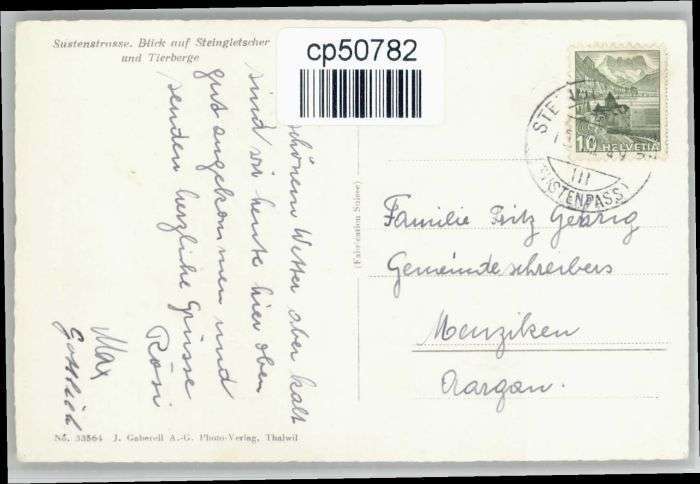 Sustenstrasse. Blick auf Steingletscher
und Tierberge
cp50782
schönem Wetter aber kalt
sind wir heute hier oben
gut angekommen und
senden herzliche Grüsse
Rösi
Max
Gottlieb
(Fabrication Suisse)
10 HELVETIA
STE
49
III
(SUSTENPASS)
Familie Fritz Gehrig
Gemeindeschreibers
Menziken
Aargau.
No. 33564 J. Gaberell A.-G. Photo-Verlag, Thalwil